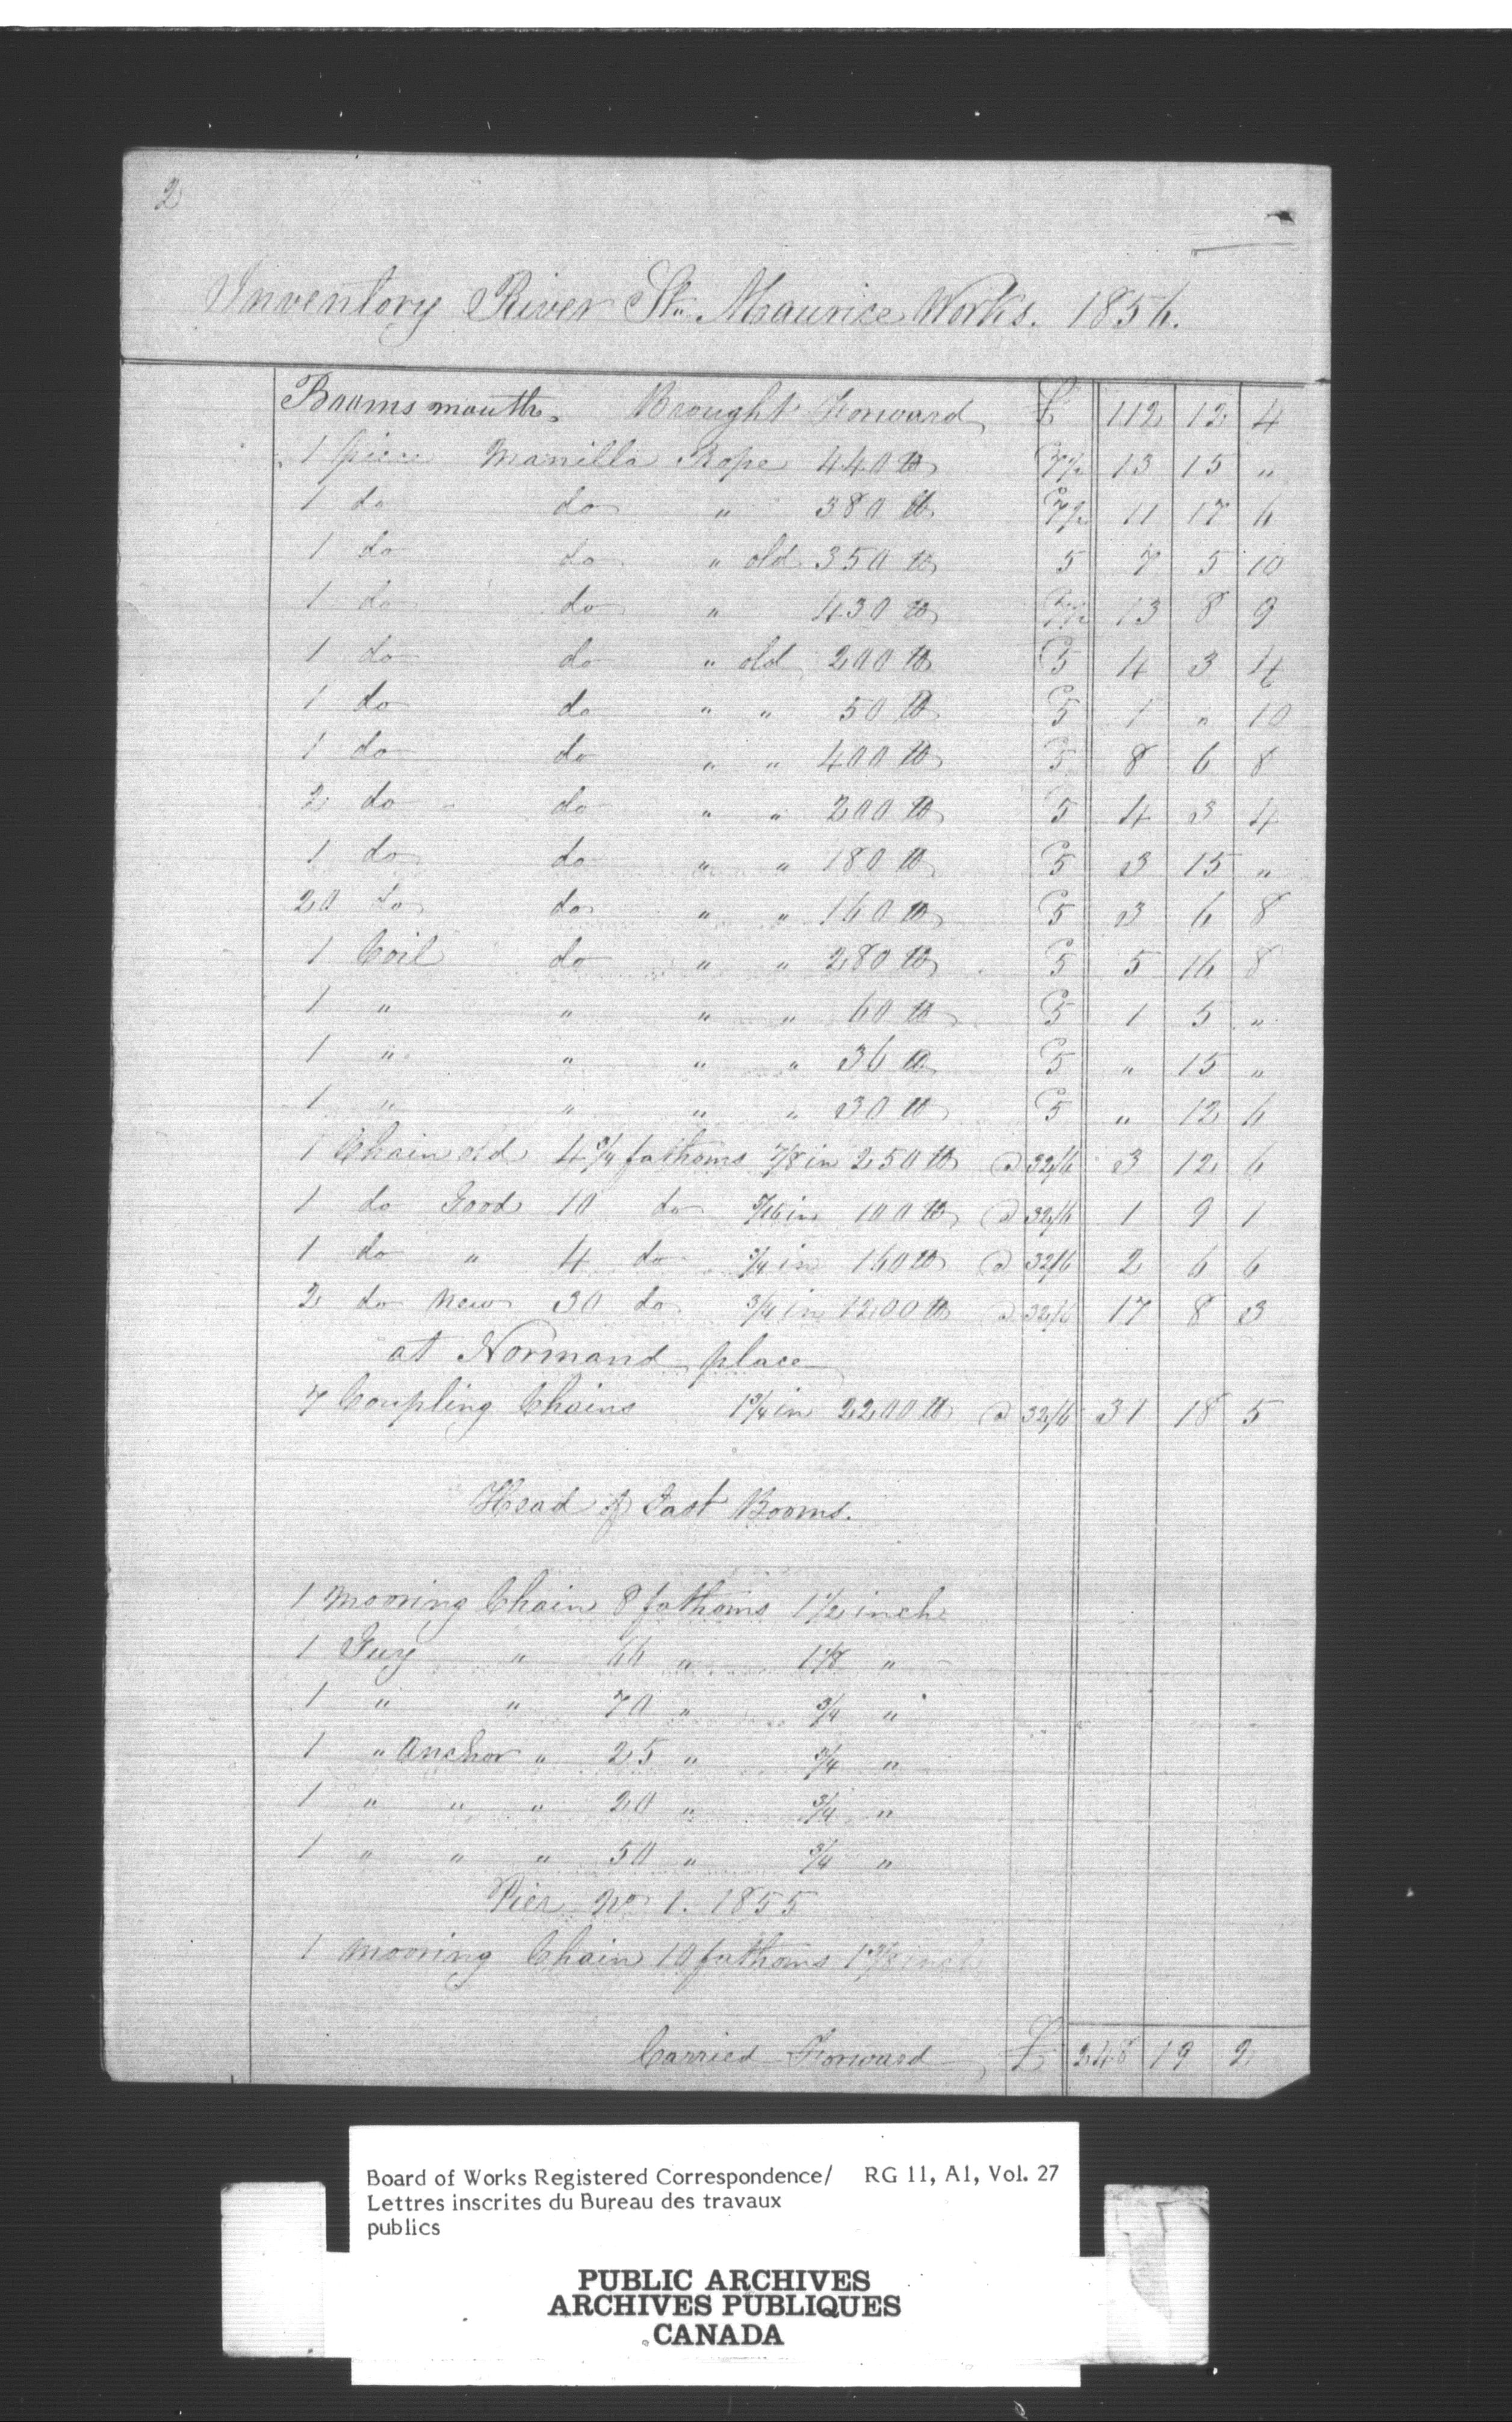 2
Inventory River St. Maurice Works. 1856.
Booms mouth. Brought Forward £ 112 12 4
1 piece Manilla Rope 440 lb 7½ 13 15 "
1 do do " 380 lb 7½ 11 17 6
1 do do " old 350 lb 5 7 5 10
1 do do " 430 lb 7½ 13 8 9
1 do do " old 200 lb 5 4 3 4
1 do do " " 50 lb 5 1 " 10
1 do do " " 400 lb 5 8 6 8
2 do do " " 200 lb 5 4 3 4
1 do do " " 180 lb 5 3 15 "
20 do do " " 160 lb 5 3 6 8
1 Coil do " " 280 lb 5 5 16 8
1 " " " " 60 lb 5 1 5 "
1 " " " " 36 lb 5 " 15 "
1 " " " " 30 lb 5 " 12 6
1 Chain old 4¾ fathoms ⅞ in 250 lb @ 32/6 3 12 6
1 do Good 10 do 5/16 in 100 lb @ 32/6 1 9 1
1 do " 4 do ¾ in 160 lb @ 32/6 2 6 6
2 do new 30 do ¾ in 1200 lb @ 32/6 17 8 3
at Normand place
7 Coupling Chains 1¾ in 2200 lb @ 32/6 31 18 5
Head of East Booms.
1 mooring Chain 8 fathoms 1½ inch
1 Guy " 66 " 1⅛ "
1 " " 70 " ¾ "
1 " Anchor " 25 " ¾ "
1 " " " 20 " ¾ "
1 " " " 50 " ¾ "
Pier No 1. 1855
1 mooring Chain 10 fathoms inch
Carried Forward £ 248 19 2
Board of Works Registered Correspondence/ RG 11, A1, Vol. 27
Lettres inscrites du Bureau des travaux
publics
PUBLIC ARCHIVES
ARCHIVES PUBLIQUES
CANADA